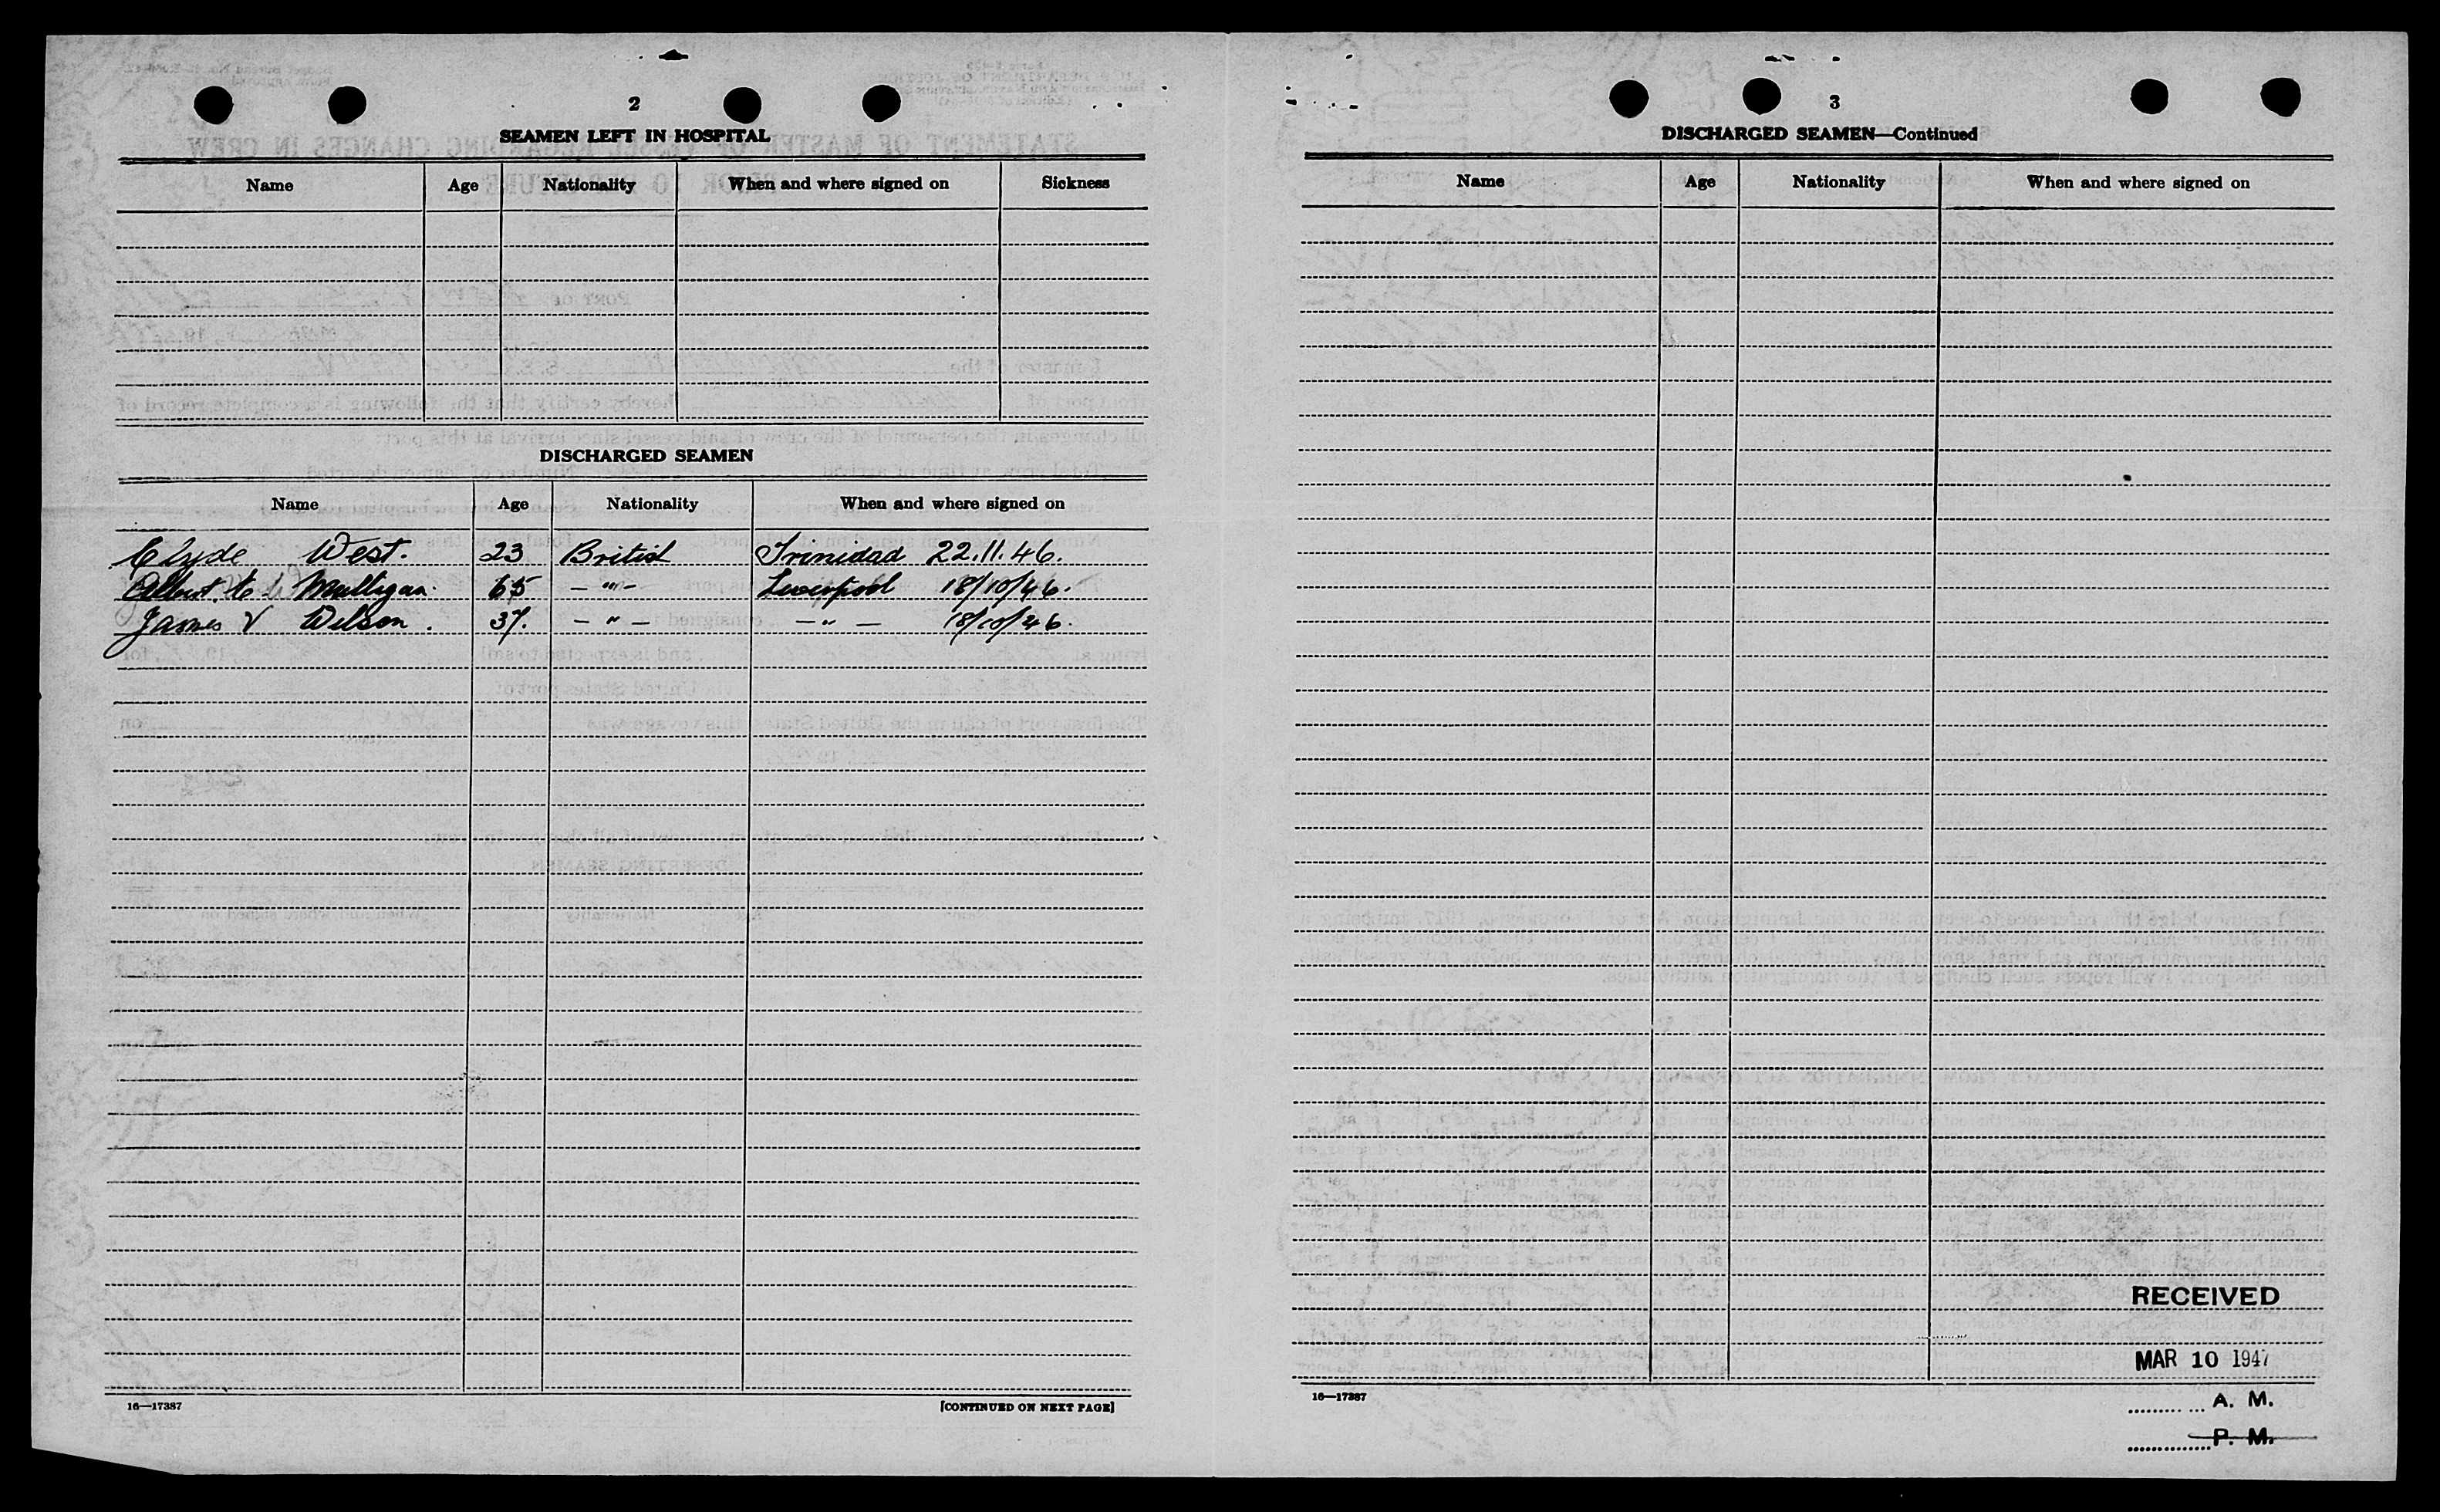 2
SEAMEN LEFT IN HOSPITAL
Name Age Nationality When and where signed on Sickness
DISCHARGED SEAMEN
Name Age Nationality When and where signed on
Clyde West. 23 British Trinidad 22.11.46.
Albert Mulligan. 65 — " — Liverpool 18/10/46.
James V Wilson. 37. — " — — " — 18/10/46.
16—17387 [CONTINUED ON NEXT PAGE]
3
DISCHARGED SEAMEN—Continued
Name Age Nationality When and where signed on
RECEIVED
MAR 10 1947
16—17387
A. M.
P. M.